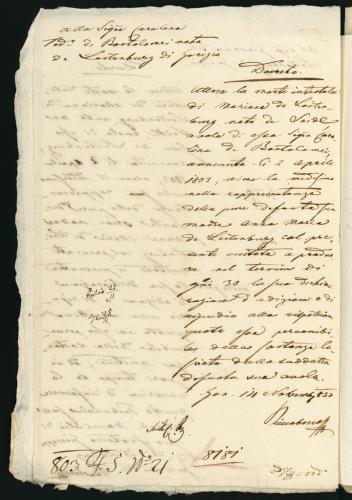 Alla Sigra Carolina
Ved. di Bartolomei nata
de Leitenburg di Gorizia
Decreto.
Attesa la morte intestata
di Mariana de Leiten-
burg nata de
avola di essa Sigra Caro-
lina di Bartolomei,
avvenuta li 2 Aprile
1803, viene la medesima
nella rappresentanza
della pure defunta sua
madre Anna Maria
de Leitenburg col pre-
sente eccitata a produr-
re nel termine di
gni 30 la sua dichia-
razione d'edizione o di
ripudio alla rispettiva
quota essa
della sostanza la-
sciata dalla suddetta
defunta sua avola.
Gor. 9bre 1833
803 F. S. No 21
8181